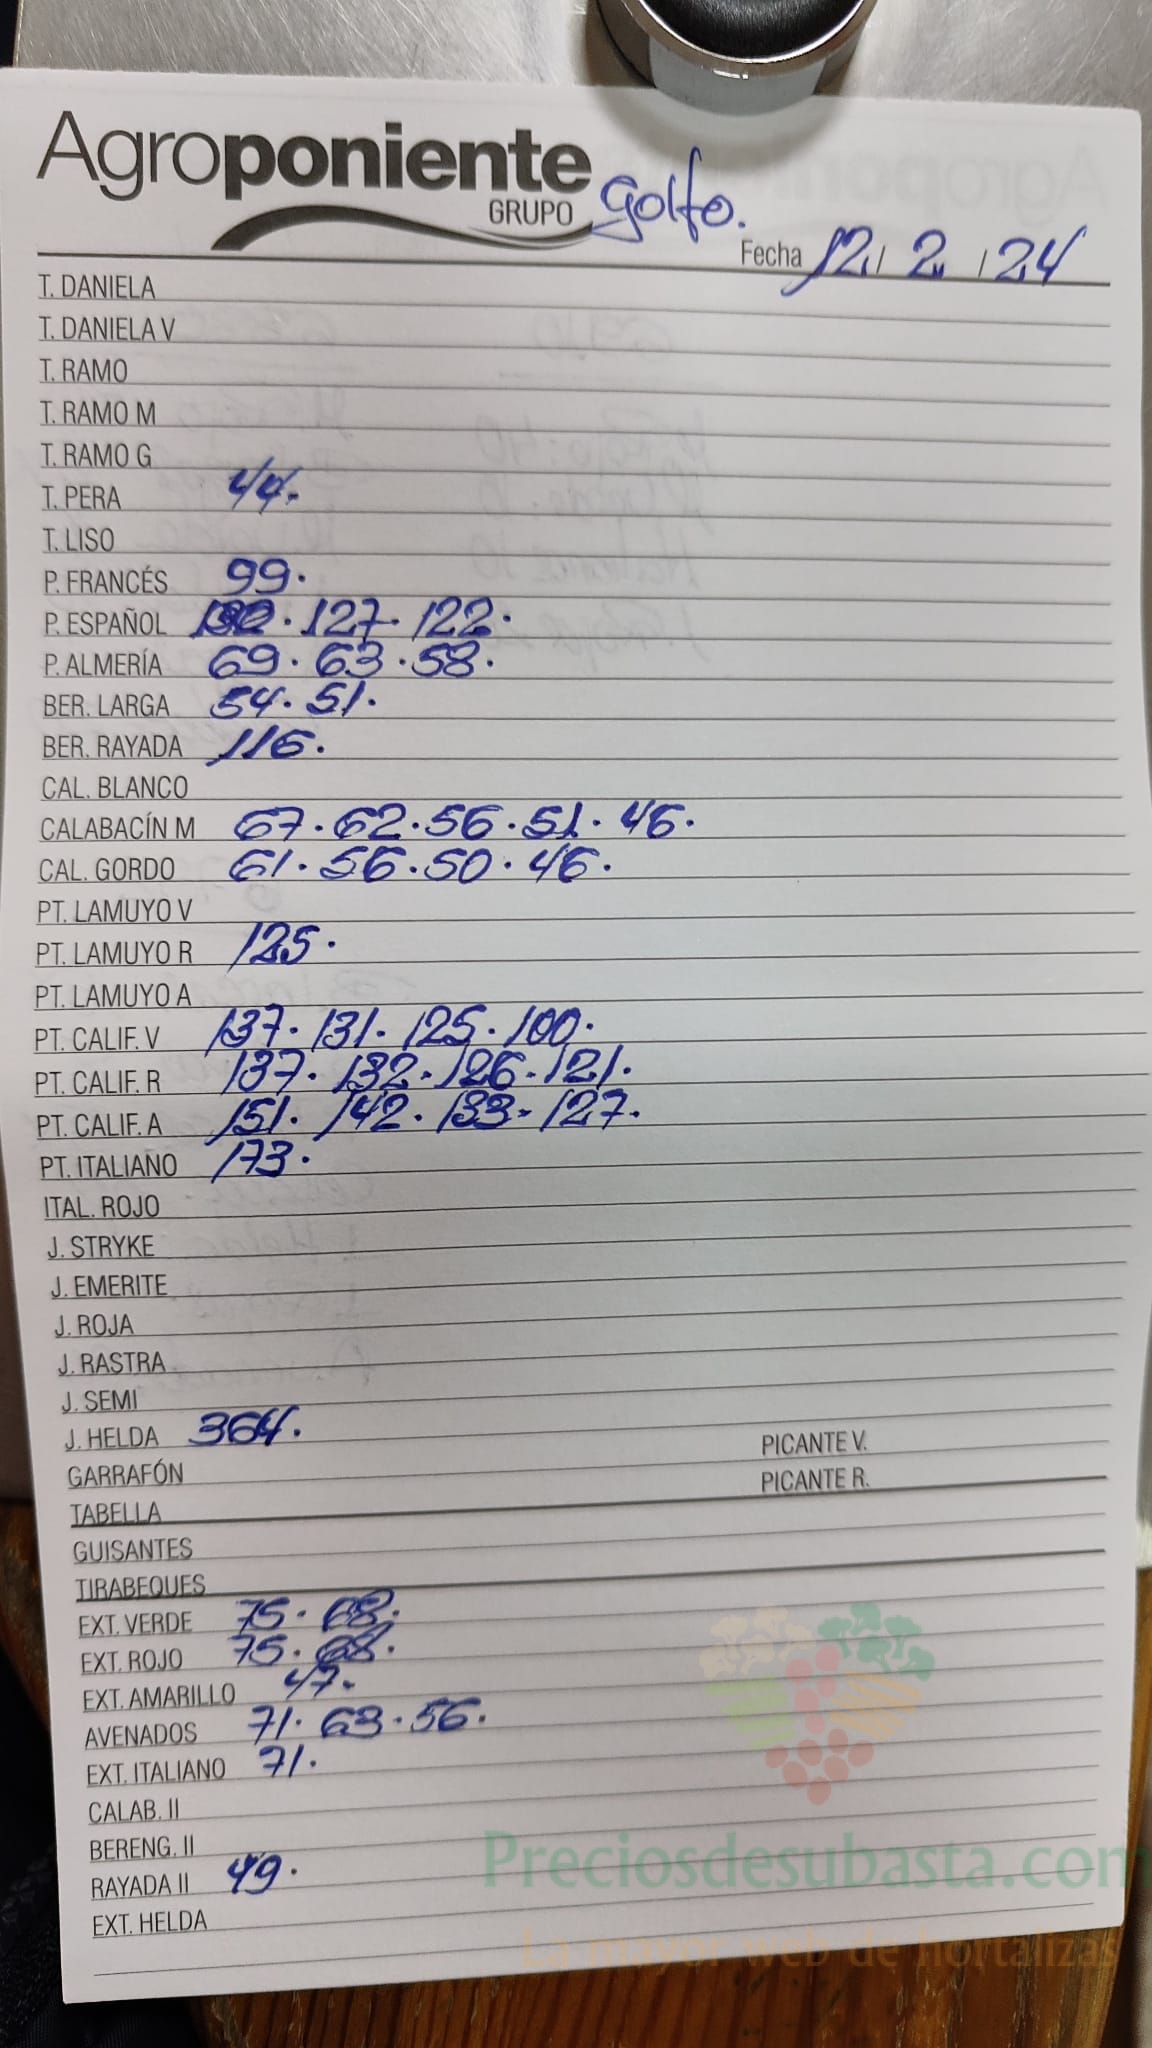 Agroponiente
GRUPO
Golfo.
Fecha 12 / 2 / 24
T. DANIELA
T. DANIELA V
T. RAMO
T. RAMO M
T. RAMO G
T. PERA 44.
T. LISO
P. FRANCÉS 99.
P. ESPAÑOL 132 . 127 . 122.
P. ALMERÍA 69 . 63 . 58.
BER. LARGA 54 . 51.
BER. RAYADA 116.
CAL. BLANCO
CALABACÍN M 67 . 62 . 56 . 51 . 46.
CAL. GORDO 61 . 56 . 50 . 46.
PT. LAMUYO V
PT. LAMUYO R 125.
PT. LAMUYO A
PT. CALIF. V 137 . 131 . 125 . 100.
PT. CALIF. R 137 . 132 . 126 . 121.
PT. CALIF. A 151 . 142 . 133 . 127.
PT. ITALIANO 173.
ITAL. ROJO
J. STRYKE
J. EMERITE
J. ROJA
J. RASTRA
J. SEMI
J. HELDA 364. PICANTE V.
GARRAFÓN PICANTE R.
TABELLA
GUISANTES
TIRABEQUES
EXT. VERDE 75 . 68.
EXT. ROJO 75 . 68.
EXT. AMARILLO 47.
AVENADOS 71 . 63 . 56.
EXT. ITALIANO 71.
CALAB. II
BERENG. II
RAYADA II 49.
EXT. HELDA
Preciosdesubasta.com
La mayor web de hortalizas